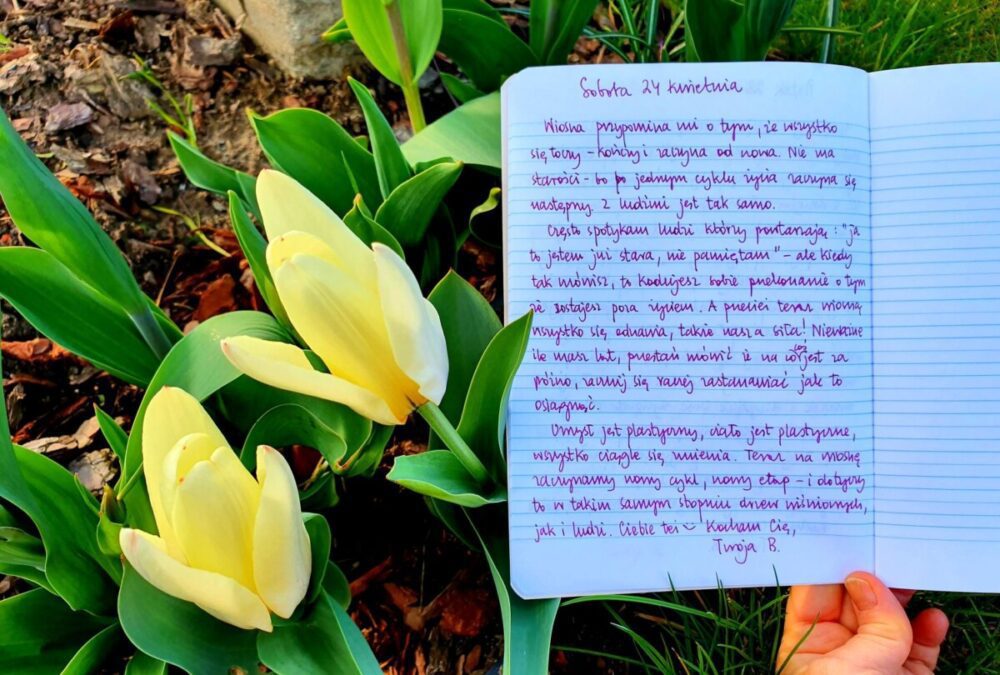 Sobota 24 kwietnia
Wiosna przypomina mi o tym, że wszystko
się toczy - kończy i zaczyna od nowa. Nie ma
starości - bo po jednym cyklu życia zaczyna się
następny. Z ludźmi jest tak samo.
Często spotykam ludzi którzy powtarzają: "ja
to jestem już stara, nie pamiętam" - ale kiedy
tak mówisz, to kodujesz sobie przekonanie o tym
że zostajesz poza życiem. A przecież teraz wiosną
wszystko się odnawia, także nasza siła! Nieważne
ile masz lat, przestań mówić że na coś jest za
późno, zacznij się raczej zastanawiać jak to
osiągnąć.
Umysł jest plastyczny, ciało jest plastyczne,
wszystko ciągle się zmienia. Teraz na wiosnę
zaczynamy nowy cykl, nowy etap - i dotyczy
to w takim samym stopniu drzew wiśniowych,
jak i ludzi. Ciebie też ‿ Kocham Cię,
Twoja B.